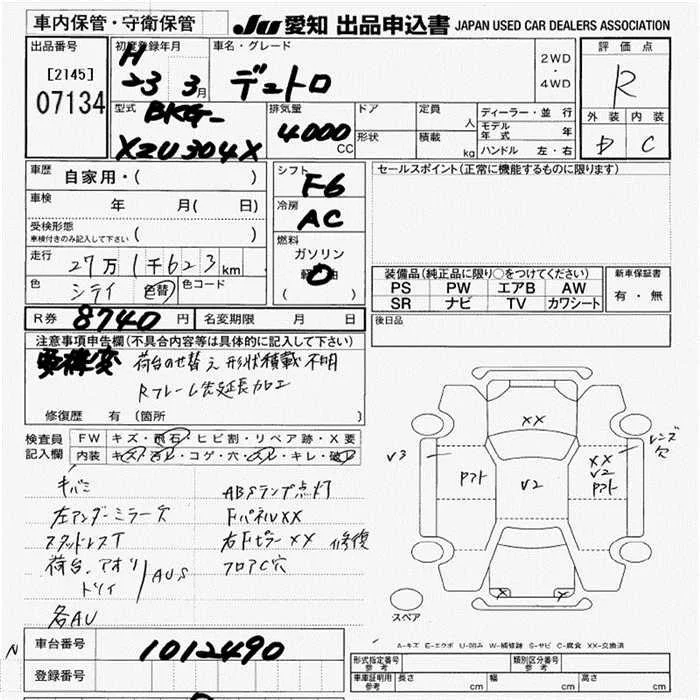 車内保管・守衛保管
JU 愛知 出品申込書 JAPAN USED CAR DEALERS ASSOCIATION
出品番号
[2145]
07134
初度登録年月
H
23 3月
車名・グレード
デュトロ
2WD
・
4WD
評価点
R
外装 内装
D C
型式
BKG-
XZU304X
排気量
4000
CC
ドア
形状
定員
人
積載
kg
ディーラー・並行
モデル年式 年
ハンドル 左・右
車歴
自家用・( )
車検
年 月( 日)
受検形態
車検付きのみ記入して下さい ( )
走行
27万1千623km
色
シライ 色替
色コード
シフト
F6
冷房
AC
燃料
ガソリン
軽油
( )
セールスポイント(正常に機能するものに限ります)
装備品(純正品に限り○をつけてください)
PS PW エアB AW
SR ナビ TV カワシート
新車保証書
有・無
後日品
R券 8740円
名変期限 月 日
注意事項申告欄(不具合内容等は具体的に記入して下さい)
要構変 荷台のせ替え 形状積載不明
Rフレーム先延長加工
修復歴 有 (箇所 )
検査員
記入欄
FW キズ・飛石・ヒビ割・リペア跡・X要
内装 キズ・汚レ・コゲ・穴・スレ・キレ・破レ
キバミ
左アンダーミラー欠
スタッドレスT
荷台、アオリ
トリイ
AUS
各AU
ABSランプ点灯
FパネルXX
右FピラーXX 修復
フロアC穴
XX
V3
アオト
V2
XX
V2
アオト
レンズ穴
X X
スペア
A-キズ E-エクボ U-凹み W-補修跡 S-サビ C-腐食 XX-交換済
車台番号
1012490
登録番号
形式指定番号
参考
類別区分番号
参考
車庫証明用
参考
長さ cm
幅 cm
高さ cm
N